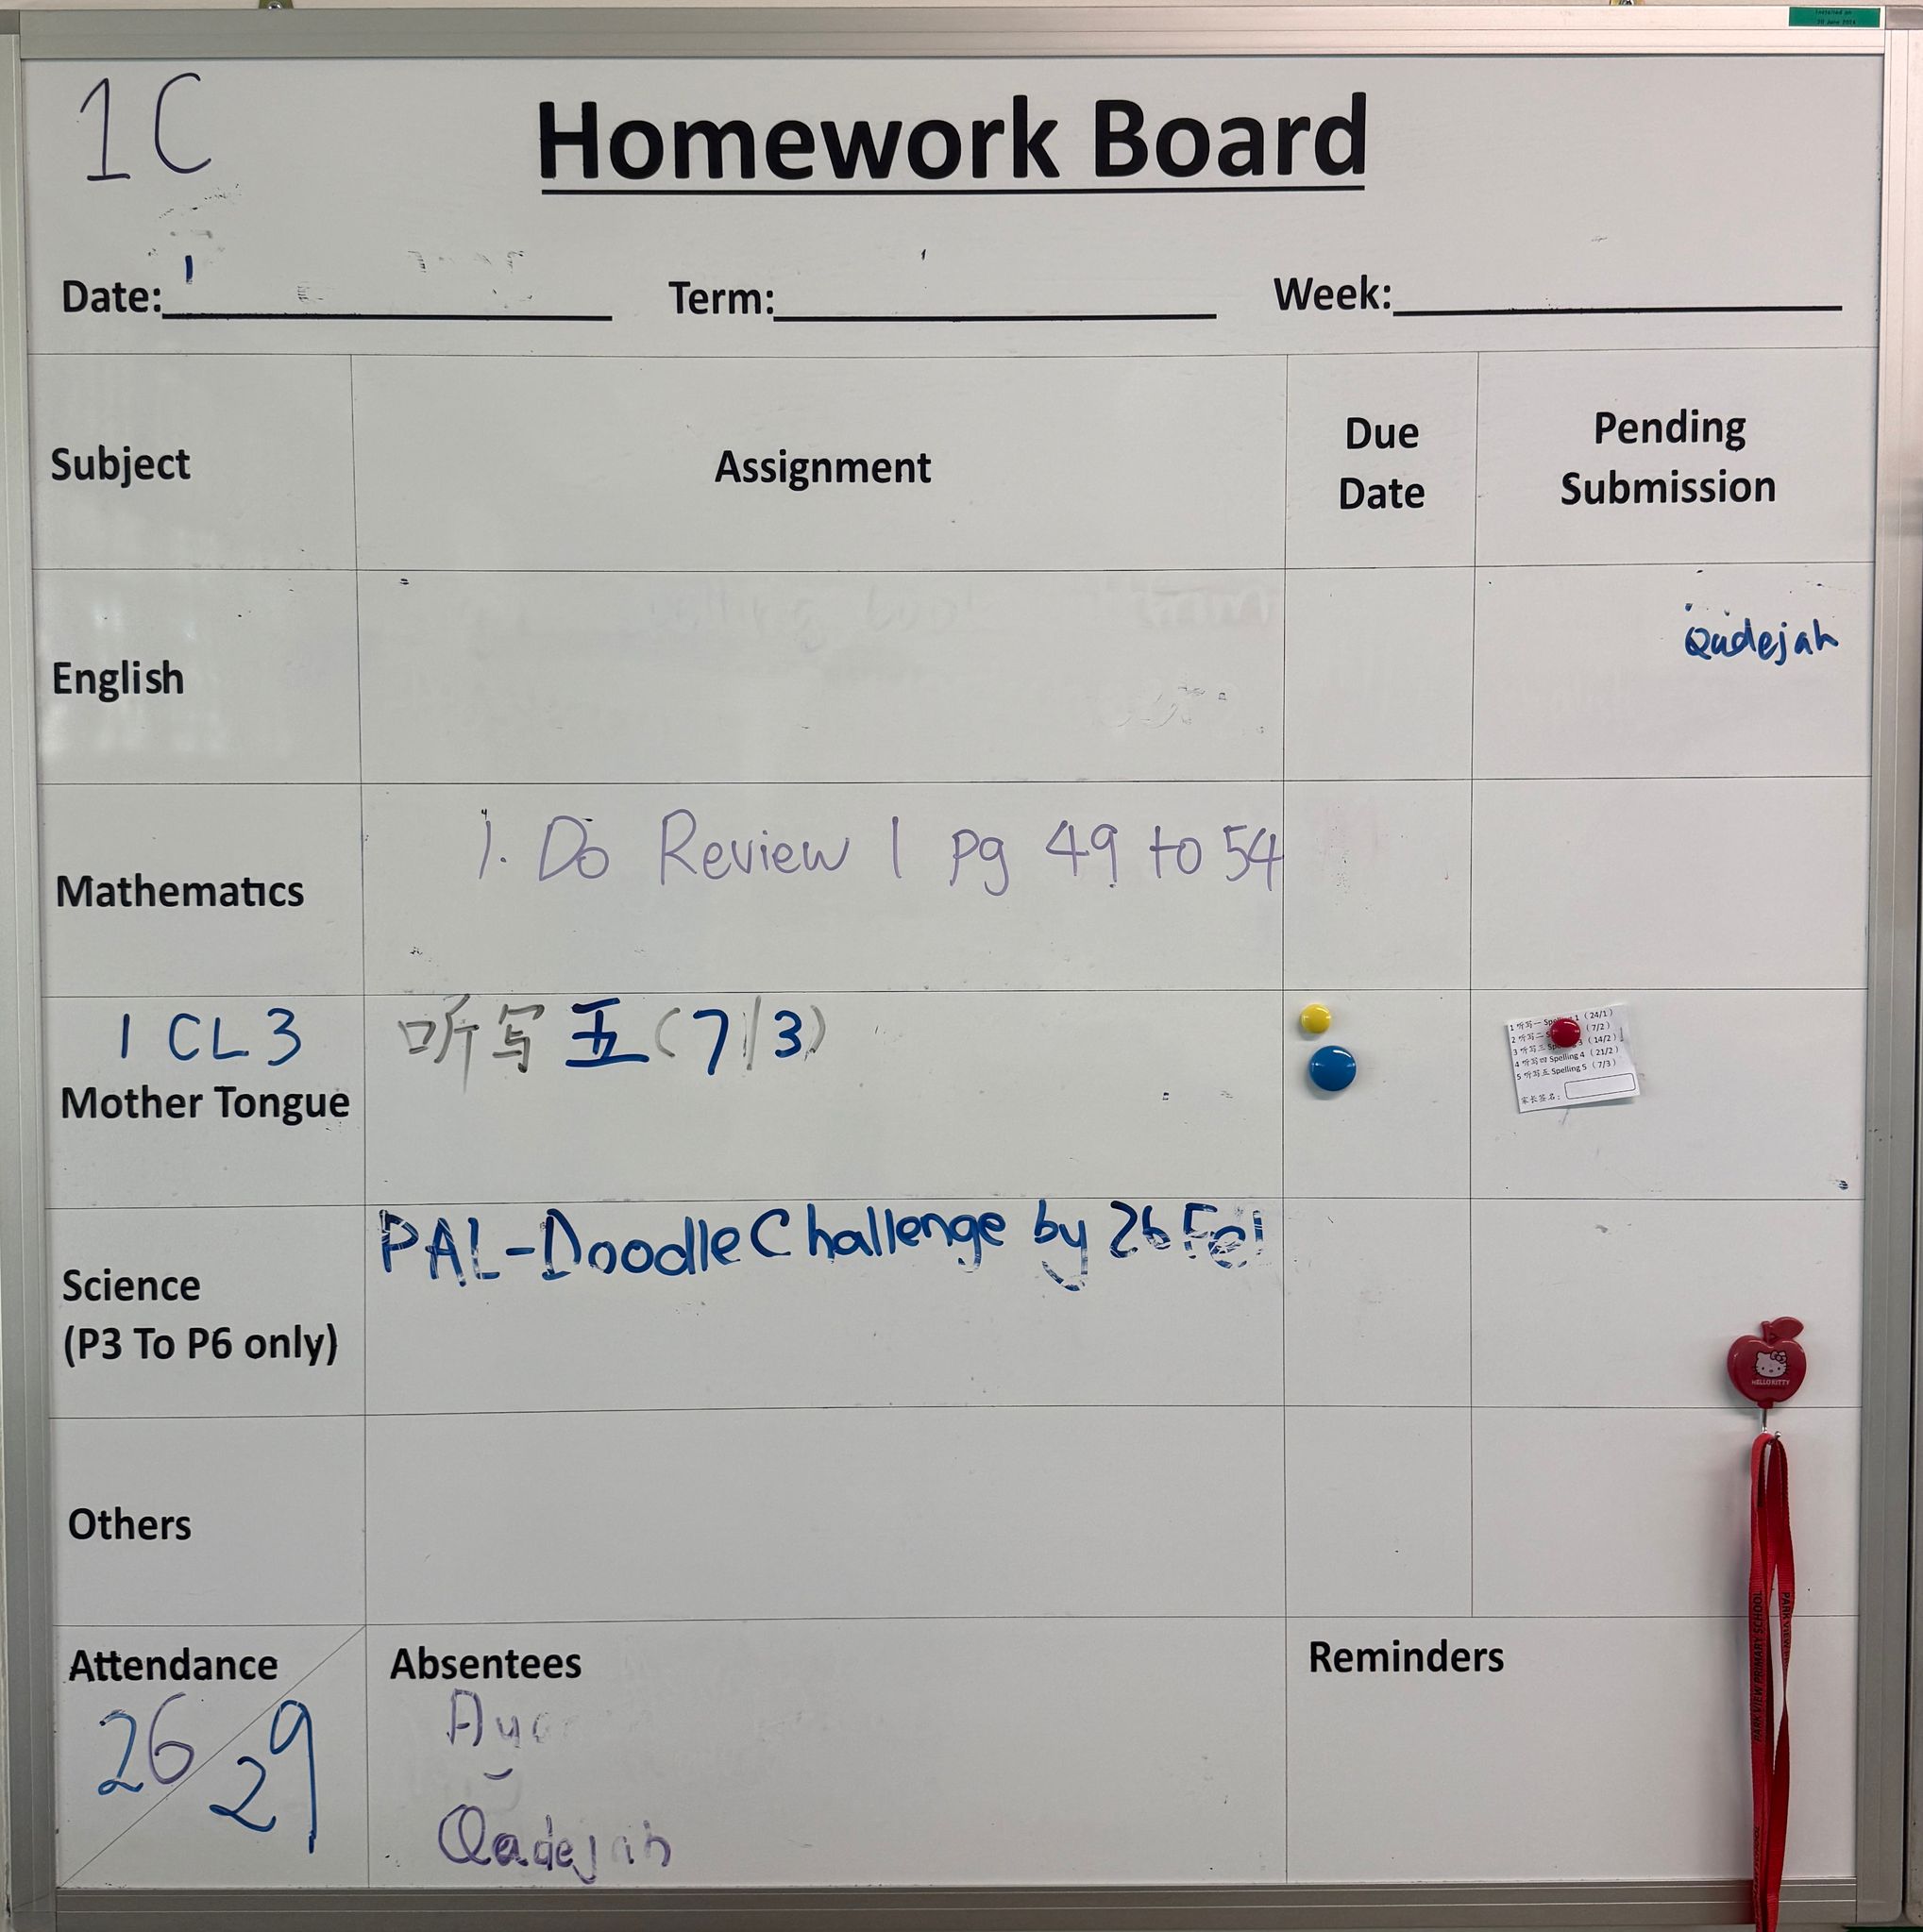 Installed on
20 June 2024
1C
Homework Board
Date: Term: Week:
Subject
Assignment
Due
Date
Pending
Submission
English
Qadejah
Mathematics
1. Do Review 1 pg 49 to 54
1 CL3
Mother Tongue
听写五(7/3)
1 听写一 1 (24/1)
2 听写二 (7/2)
3 听写三 3 (14/2)
4 听写四 Spelling 4 (21/2)
5 听写五 Spelling 5 (7/3)
家长签名:
Science
(P3 To P6 only)
PAL-Doodle Challenge by 26
HELLO KITTY
Others
Attendance
26/29
Absentees
Qadejah
Reminders
PARK VIEW PRIMARY SCHOOL